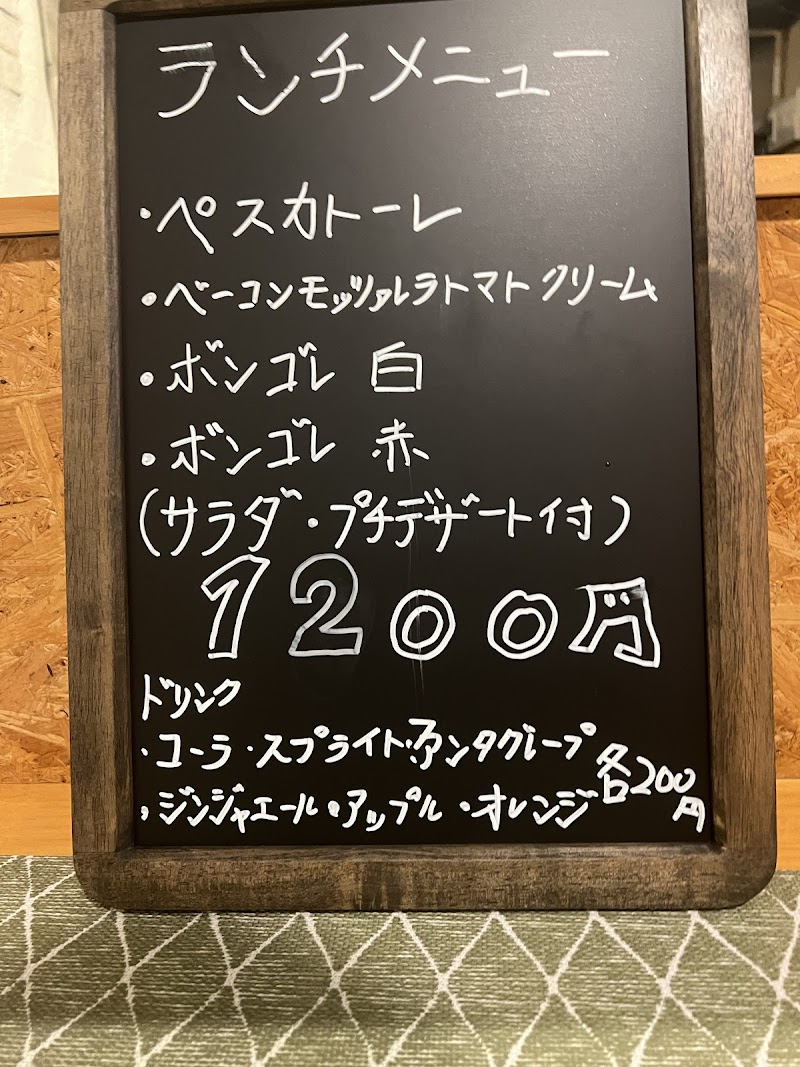 ランチメニュー
・ペスカトーレ
・ベーコンモッツァレラトマトクリーム
・ボンゴレ 白
・ボンゴレ 赤
(サラダ・プチデザート付)
1200円
ドリンク
・コーラ・スプライト・ファンタグレープ
・ジンジャエール・アップル・オレンジ 各200円